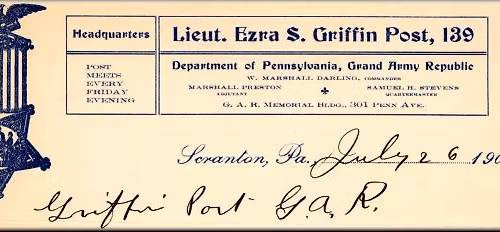 Headquarters
POST
MEETS
EVERY
FRIDAY
EVENING
Lieut. Ezra S. Griffin Post, 139
Department of Pennsylvania, Grand Army Republic
W. MARSHALL DARLING, COMMANDER
MARSHALL PRESTON SAMUEL H. STEVENS
ADJUTANT QUARTERMASTER
G. A. R. MEMORIAL BLDG., 301 PENN AVE.
Scranton, Pa., July 26 190
Griffin Post G. A. R.